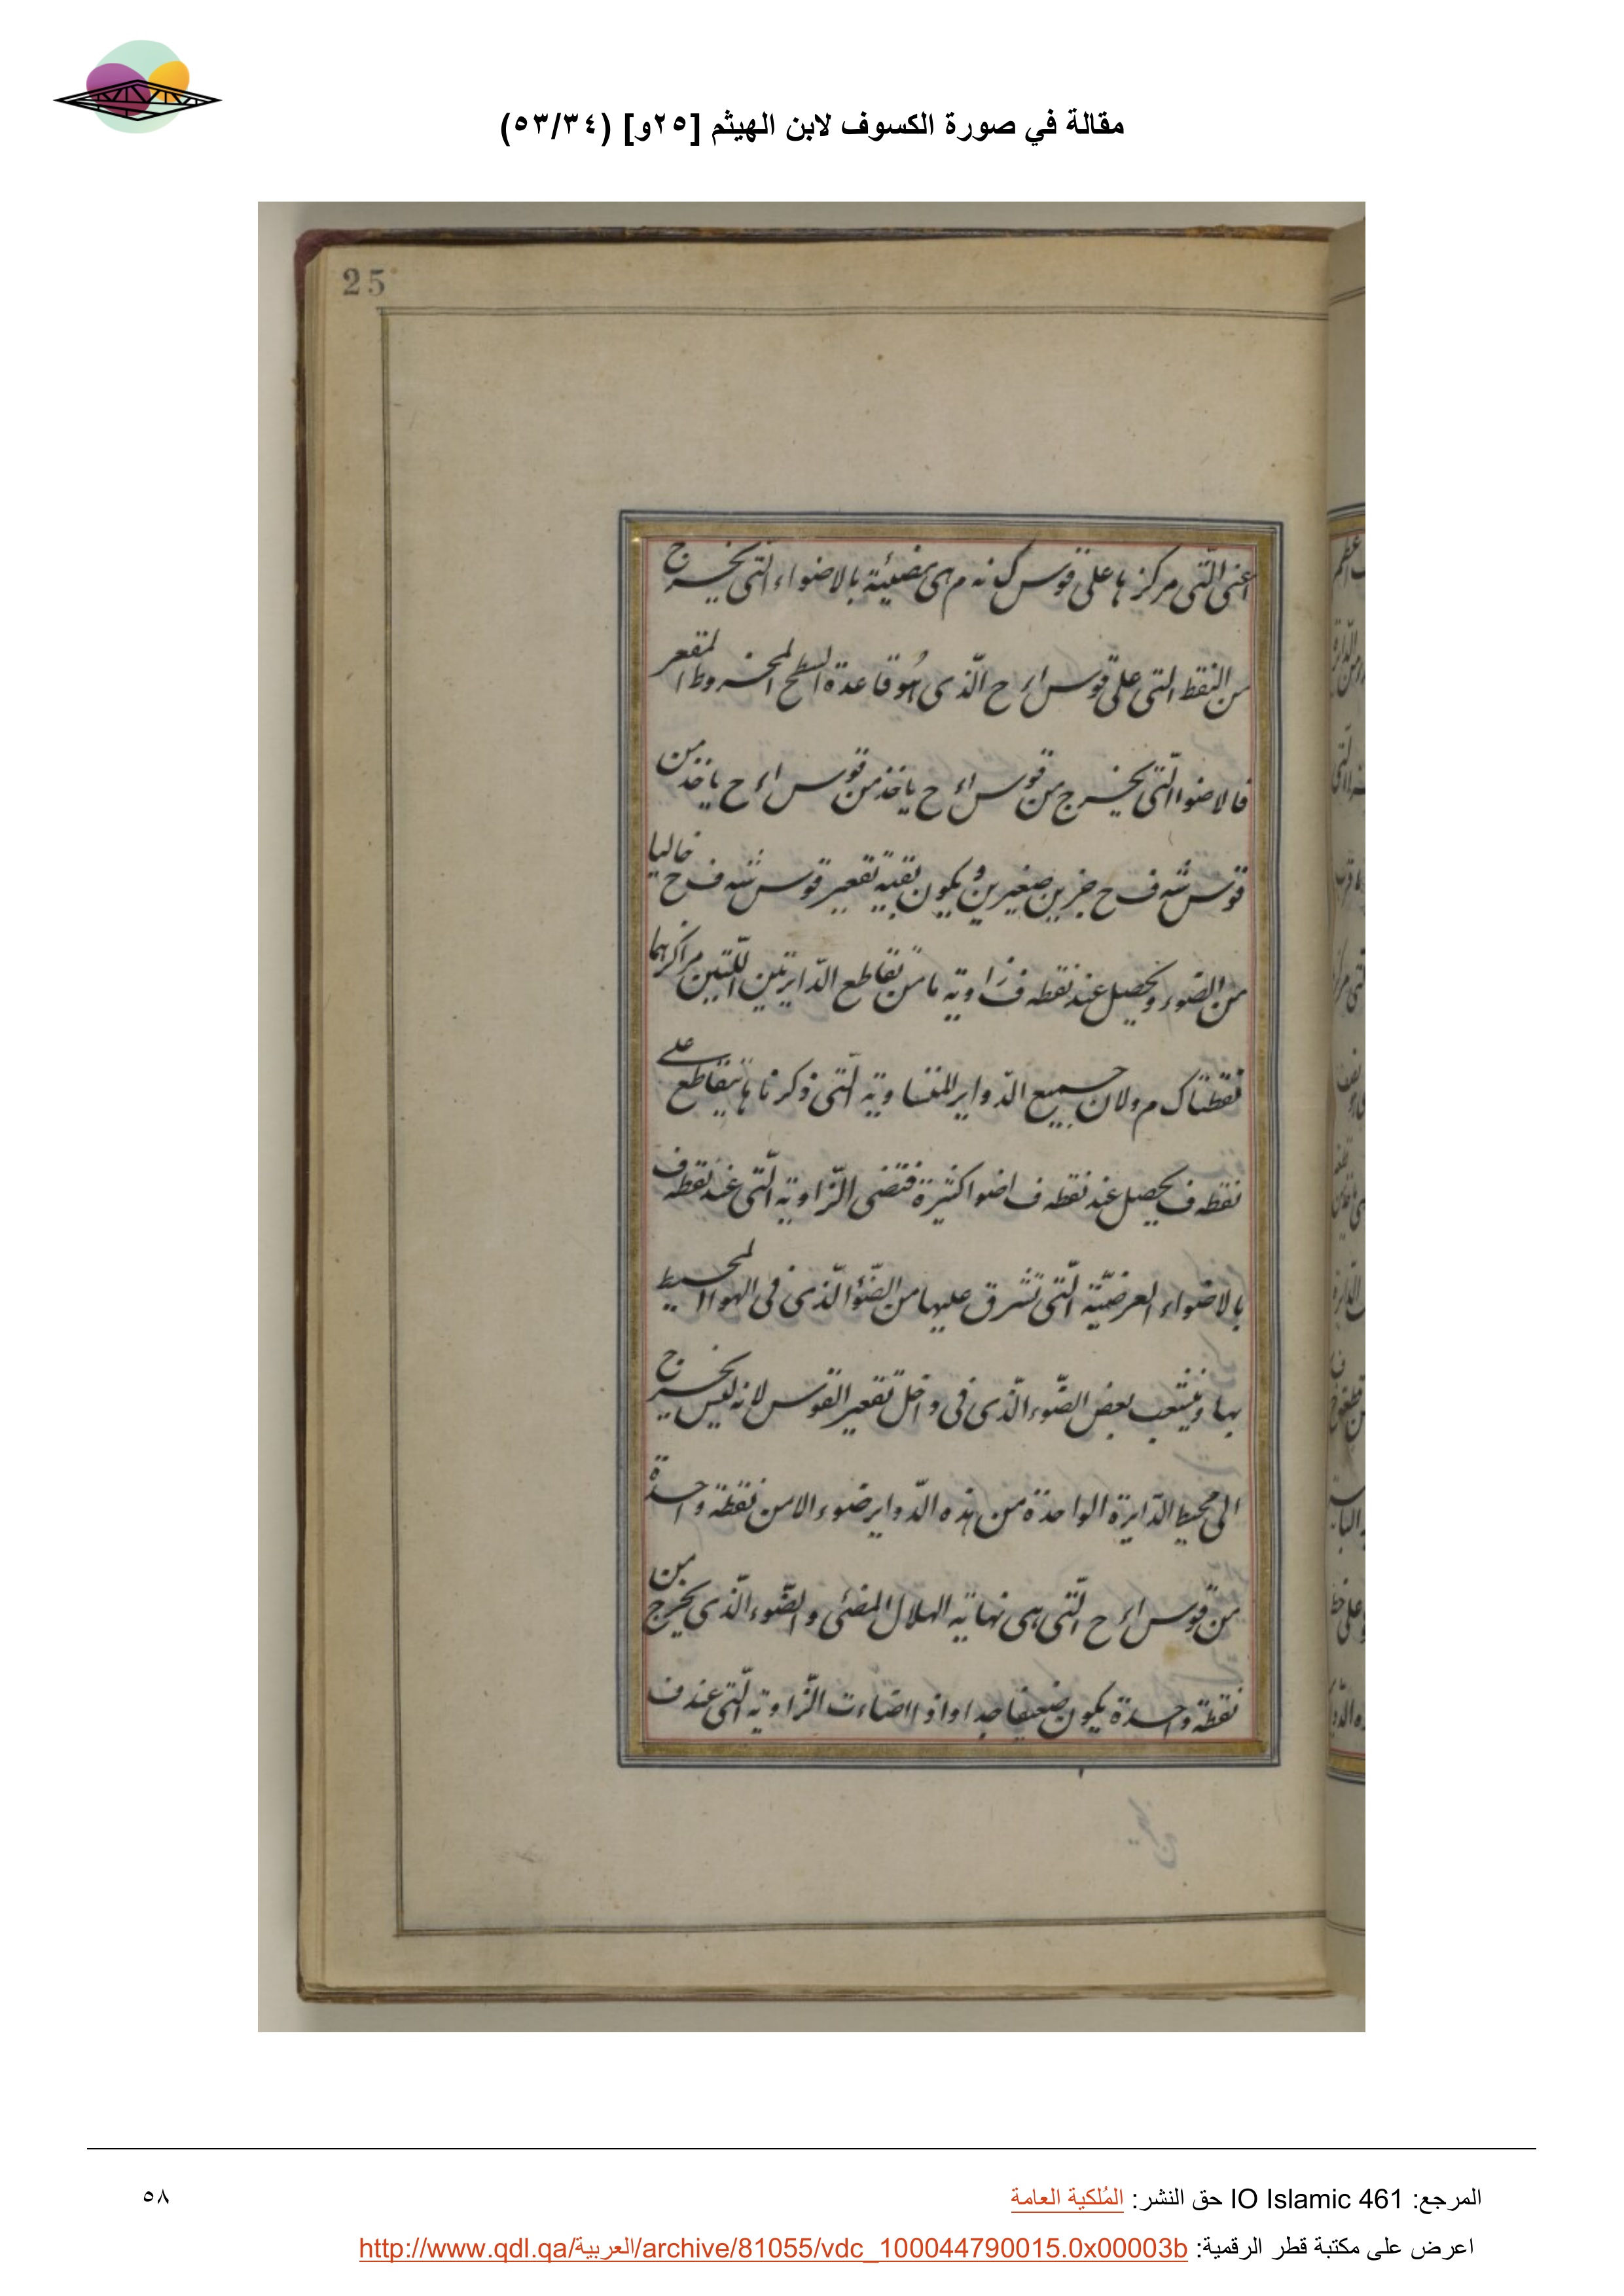 مقالة في صورة الكسوف لابن الهيثم [٢٥و] (٥٣/٣٤)
25
اعنى الّتى مركزها على قوس ك نه م هى مضيئة بالاضواء التى يخرج
من النقط التى على قوس اء ح الّذى هُو قاعدة السطح المخروط المقعر
فالاضوا الّتى يخرج من قوس اء ح ياخذ من قوس اء ح ياخذ من
قوس شه ف ح جزين صغيرين و يكون بقية تقعير قوس شه ف ح خاليا
من الضوء و يحصل عند نقطه ف زاوية ما من تقاطع الدّايرتين اللّتين مراكزهما
نقطتا ك م و لان جميع الدّواير المتساوية الّتى ذكرناها يتقاطع على
نقطه ف يحصل عند نقطه ف اضوا كثيرة فتضى الزّاوية الّتى عند نقطه ف
بالاضواء العرضيّة الّتى تشرق عليها من الضّوء الّذى فى الهوا المحيط
بها و يتشعب بعض الضّوء الّذى فى داخل تقعير القوس لانه ليس يخرج
الى محيط الدّايرة الواحدة من هذه الدّواير ضوء الا من نقطة واحدة
من قوس اء ح الّتى هى نهاية الهلال المضئى و الضّوء الّذى يخرج من
نقطة واحدة يكون ضعيفا جدا و اذا اضاءت الزّاوية الّتى عند ف
المرجع: IO Islamic 461 حق النشر: المُلكية العامة
٥٨
اعرض على مكتبة قطر الرقمية: http://www.qdl.qa/العربية/archive/81055/vdc_100044790015.0x00003b